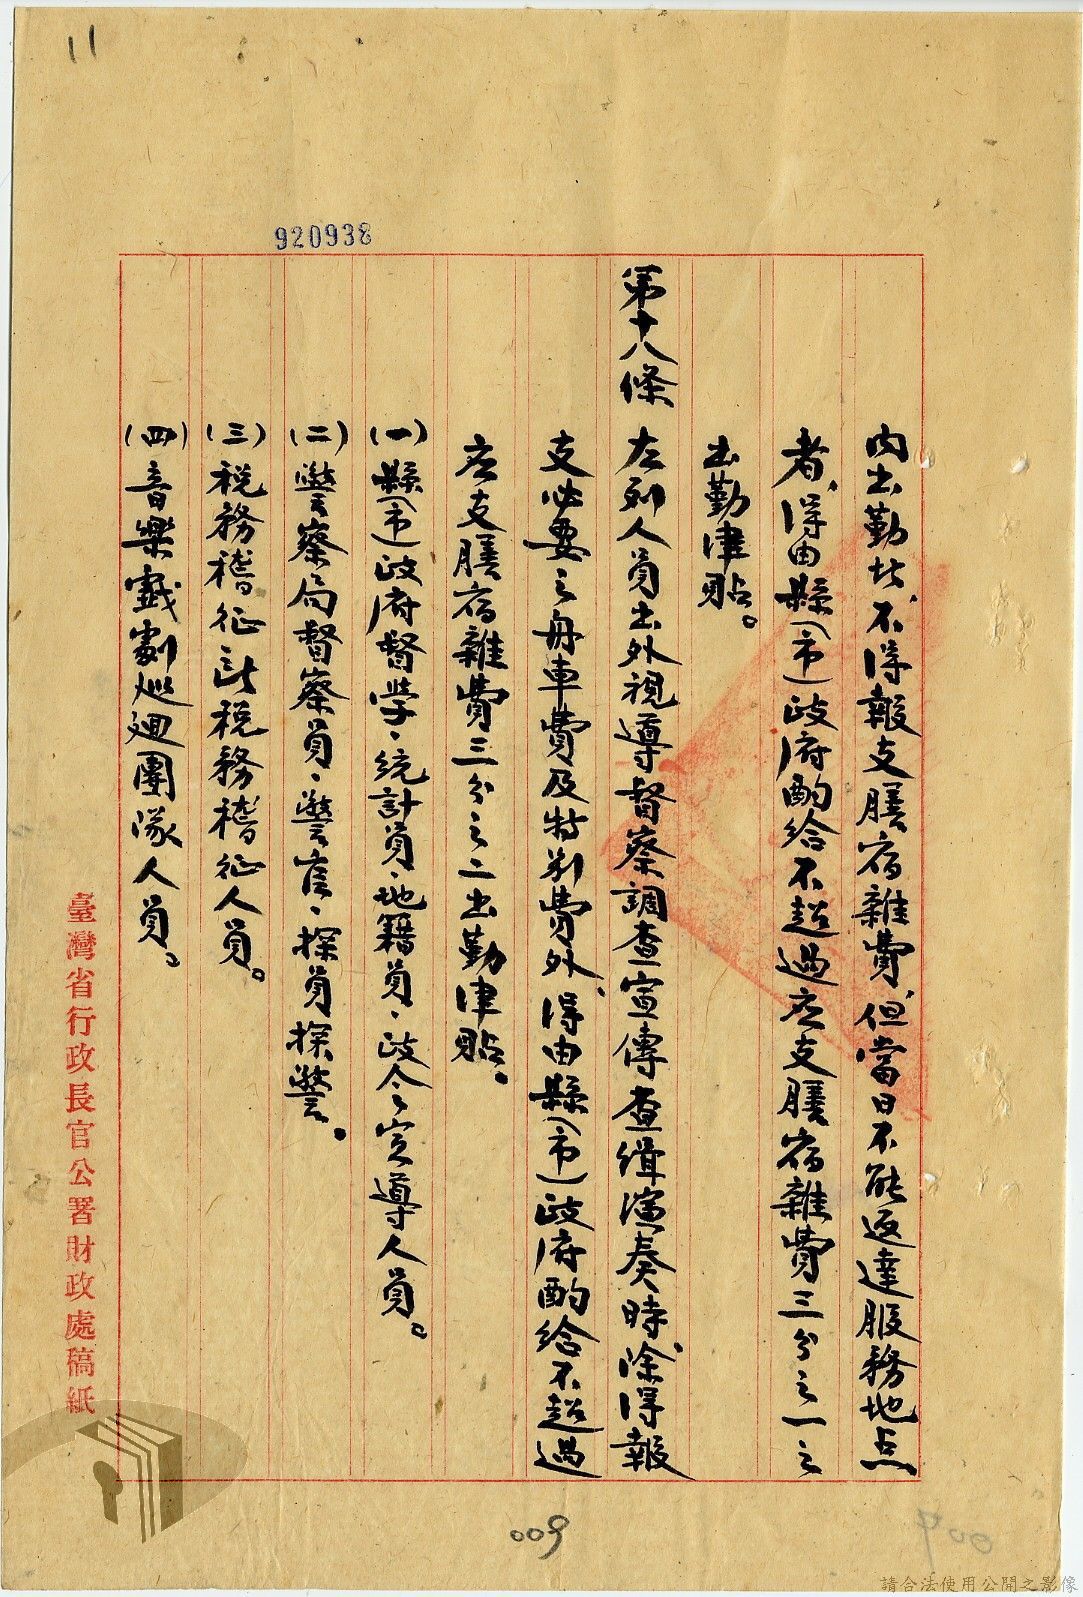 11
920938
內出勤者不得報支膳宿雜費但當日不能返達服務地点
者得由縣(市)政府酌給不超過应支膳宿雜費三分之一之
出勤津貼。
第十八條 左列人員出外視導督察調查宣傳查緝演奏時除得報
支必要之舟車費及特別費外得由縣(市)政府酌給不超過
应支膳宿雜費三分之二出勤津貼。
(一)縣(市)政府督学、統計員、地籍員、政令宣導人員。
(二)警察局督察員、警官、探員探警。
(三)税務稽征所税務稽征人員。
(四)音樂戲劇巡廻團隊人員。
臺灣省行政長官公署財政處稿紙
009
請合法使用公開之影像